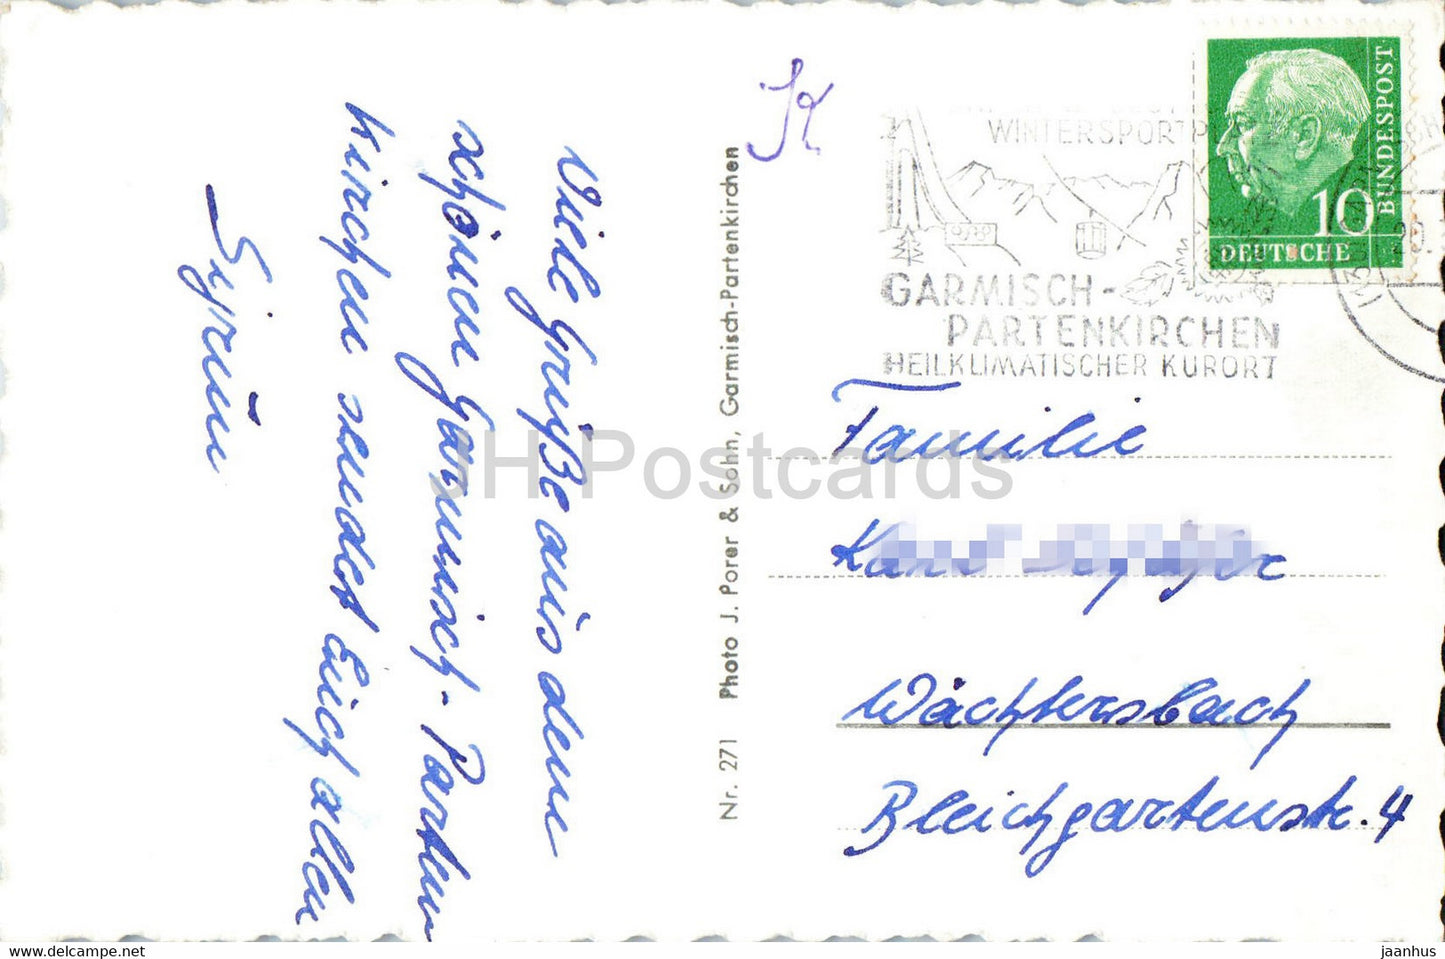 Viele Grüße aus dem
schönen Garmisch-Parten
kirchen sendet Euch allen
Sigrun
Nr. 271 Photo J. Porer & Sohn, Garmisch-Partenkirchen
WINTERSPORT
GARMISCH-
PARTENKIRCHEN
HEILKLIMATISCHER KURORT
10
BUNDESPOST
DEUTSCHE
Familie
Wächtersbach
Bleichgartenstr. 4
JH Postcards
www.delcampe.net
jaanhus